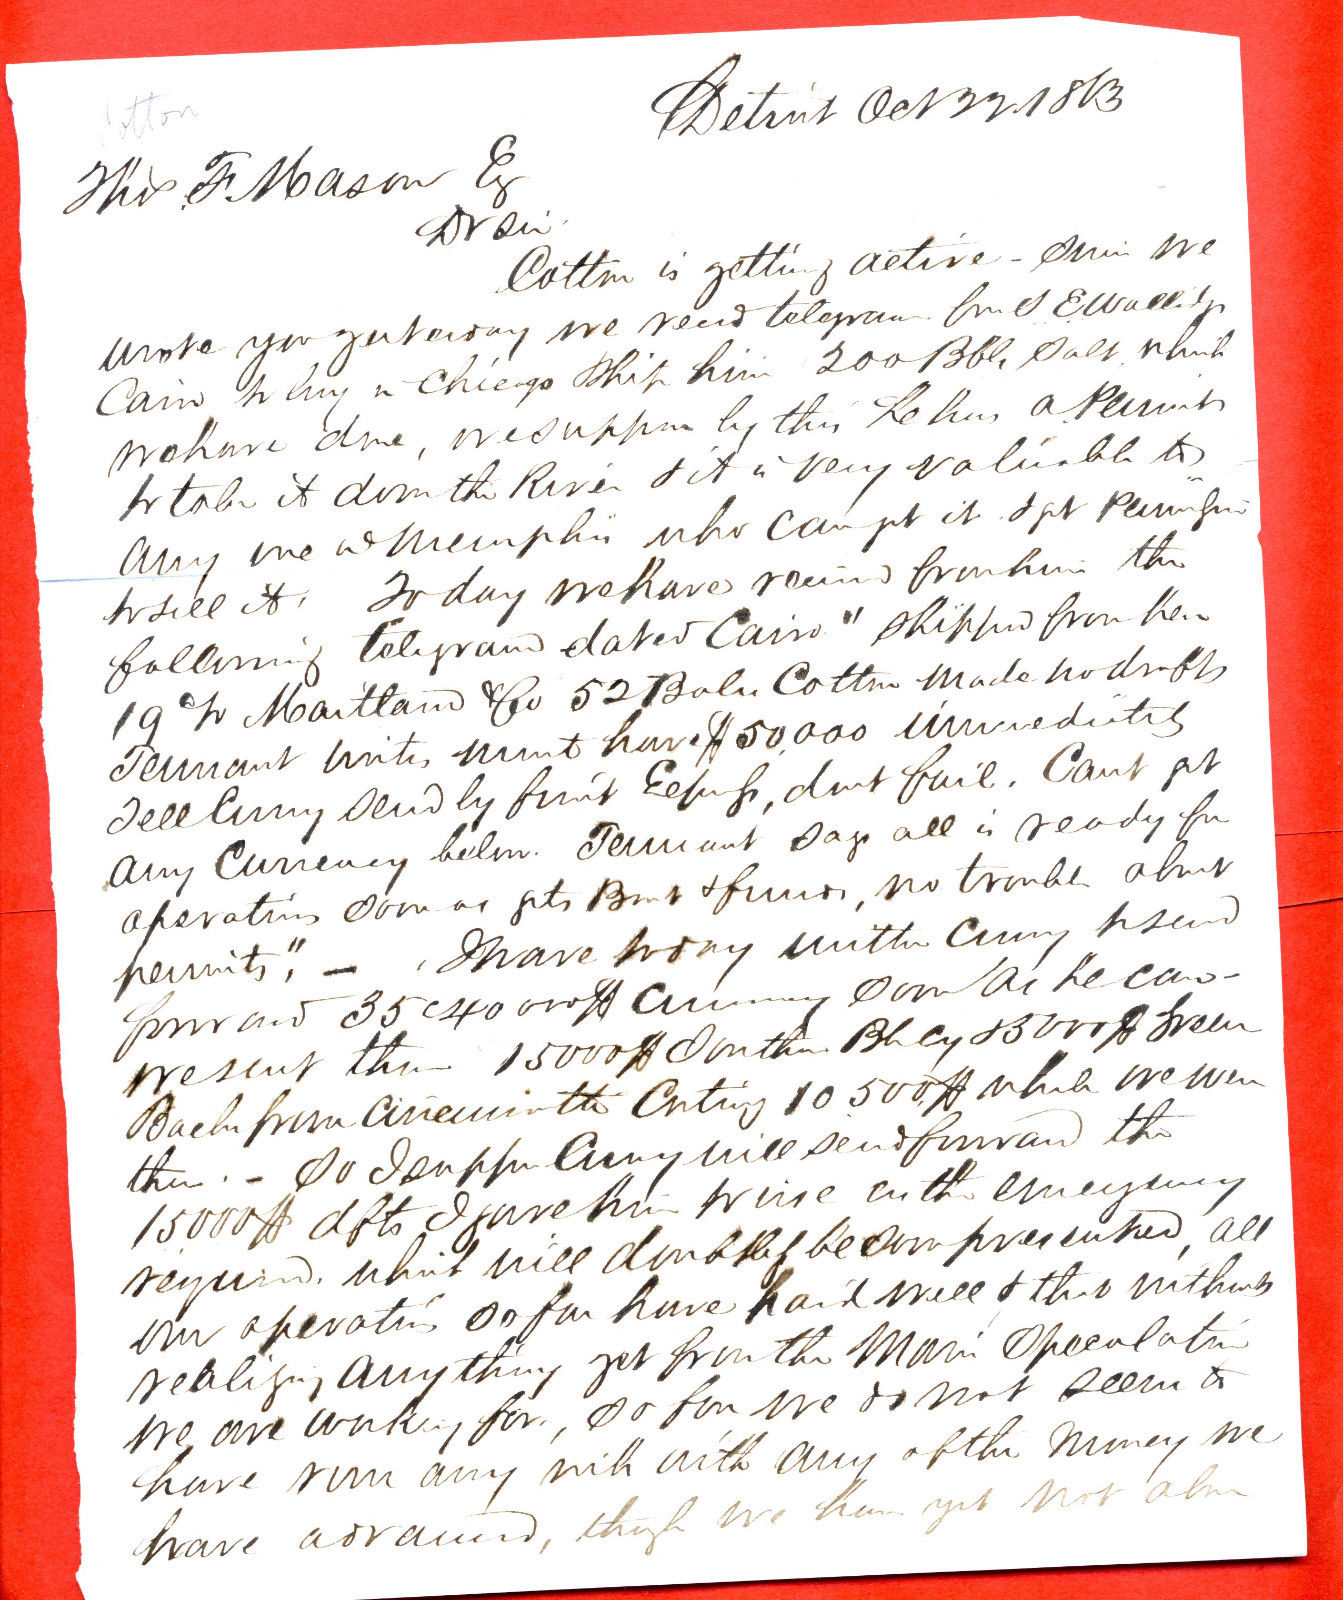 Cotton
Detroit Oct 22 1863
Thos F. Mason Esq
Dr Sir.
Cotton is getting active - Since we
wrote you yesterday we recd telegram from S E
Cairo to buy in Chicago Ship him 200 Bbls Salt, which
we have done, we suppose by this he has a Permit
to take it down the River & it is very valuable to
any one at Memphis who can get it & get Permission
to sell it. To day we have received from him the
following telegram dated Cairo "Shipped from here
19th Maitland & Co 52 Bales Cotton made no drafts
Tennant writes must have $50,000 immediately
Tell Curry send by first Express, dont fail. Cant get
any Currency below. Tennant says all is ready for
operations soon as gets Boat & funds, no trouble about
permits". - I have today written Curry to send
forward 35 @ 40 000$ Currency soon as he can -
we sent them 15000$ Southern Bk Cy & 3000$ Green
Backs from Cincinnatti Costing 10 500$ while we were
there. - So I suppose Curry will send forward the
15000$ dfts I gave him to use in the emergency
required. which will doubtless be soon presented, all
our operations so far have paid well & this without
realizing anything yet from the Main Speculation
we are working for, so far we do not seem to
have run any risk with any of the Money we
have advanced, though we have yet not above